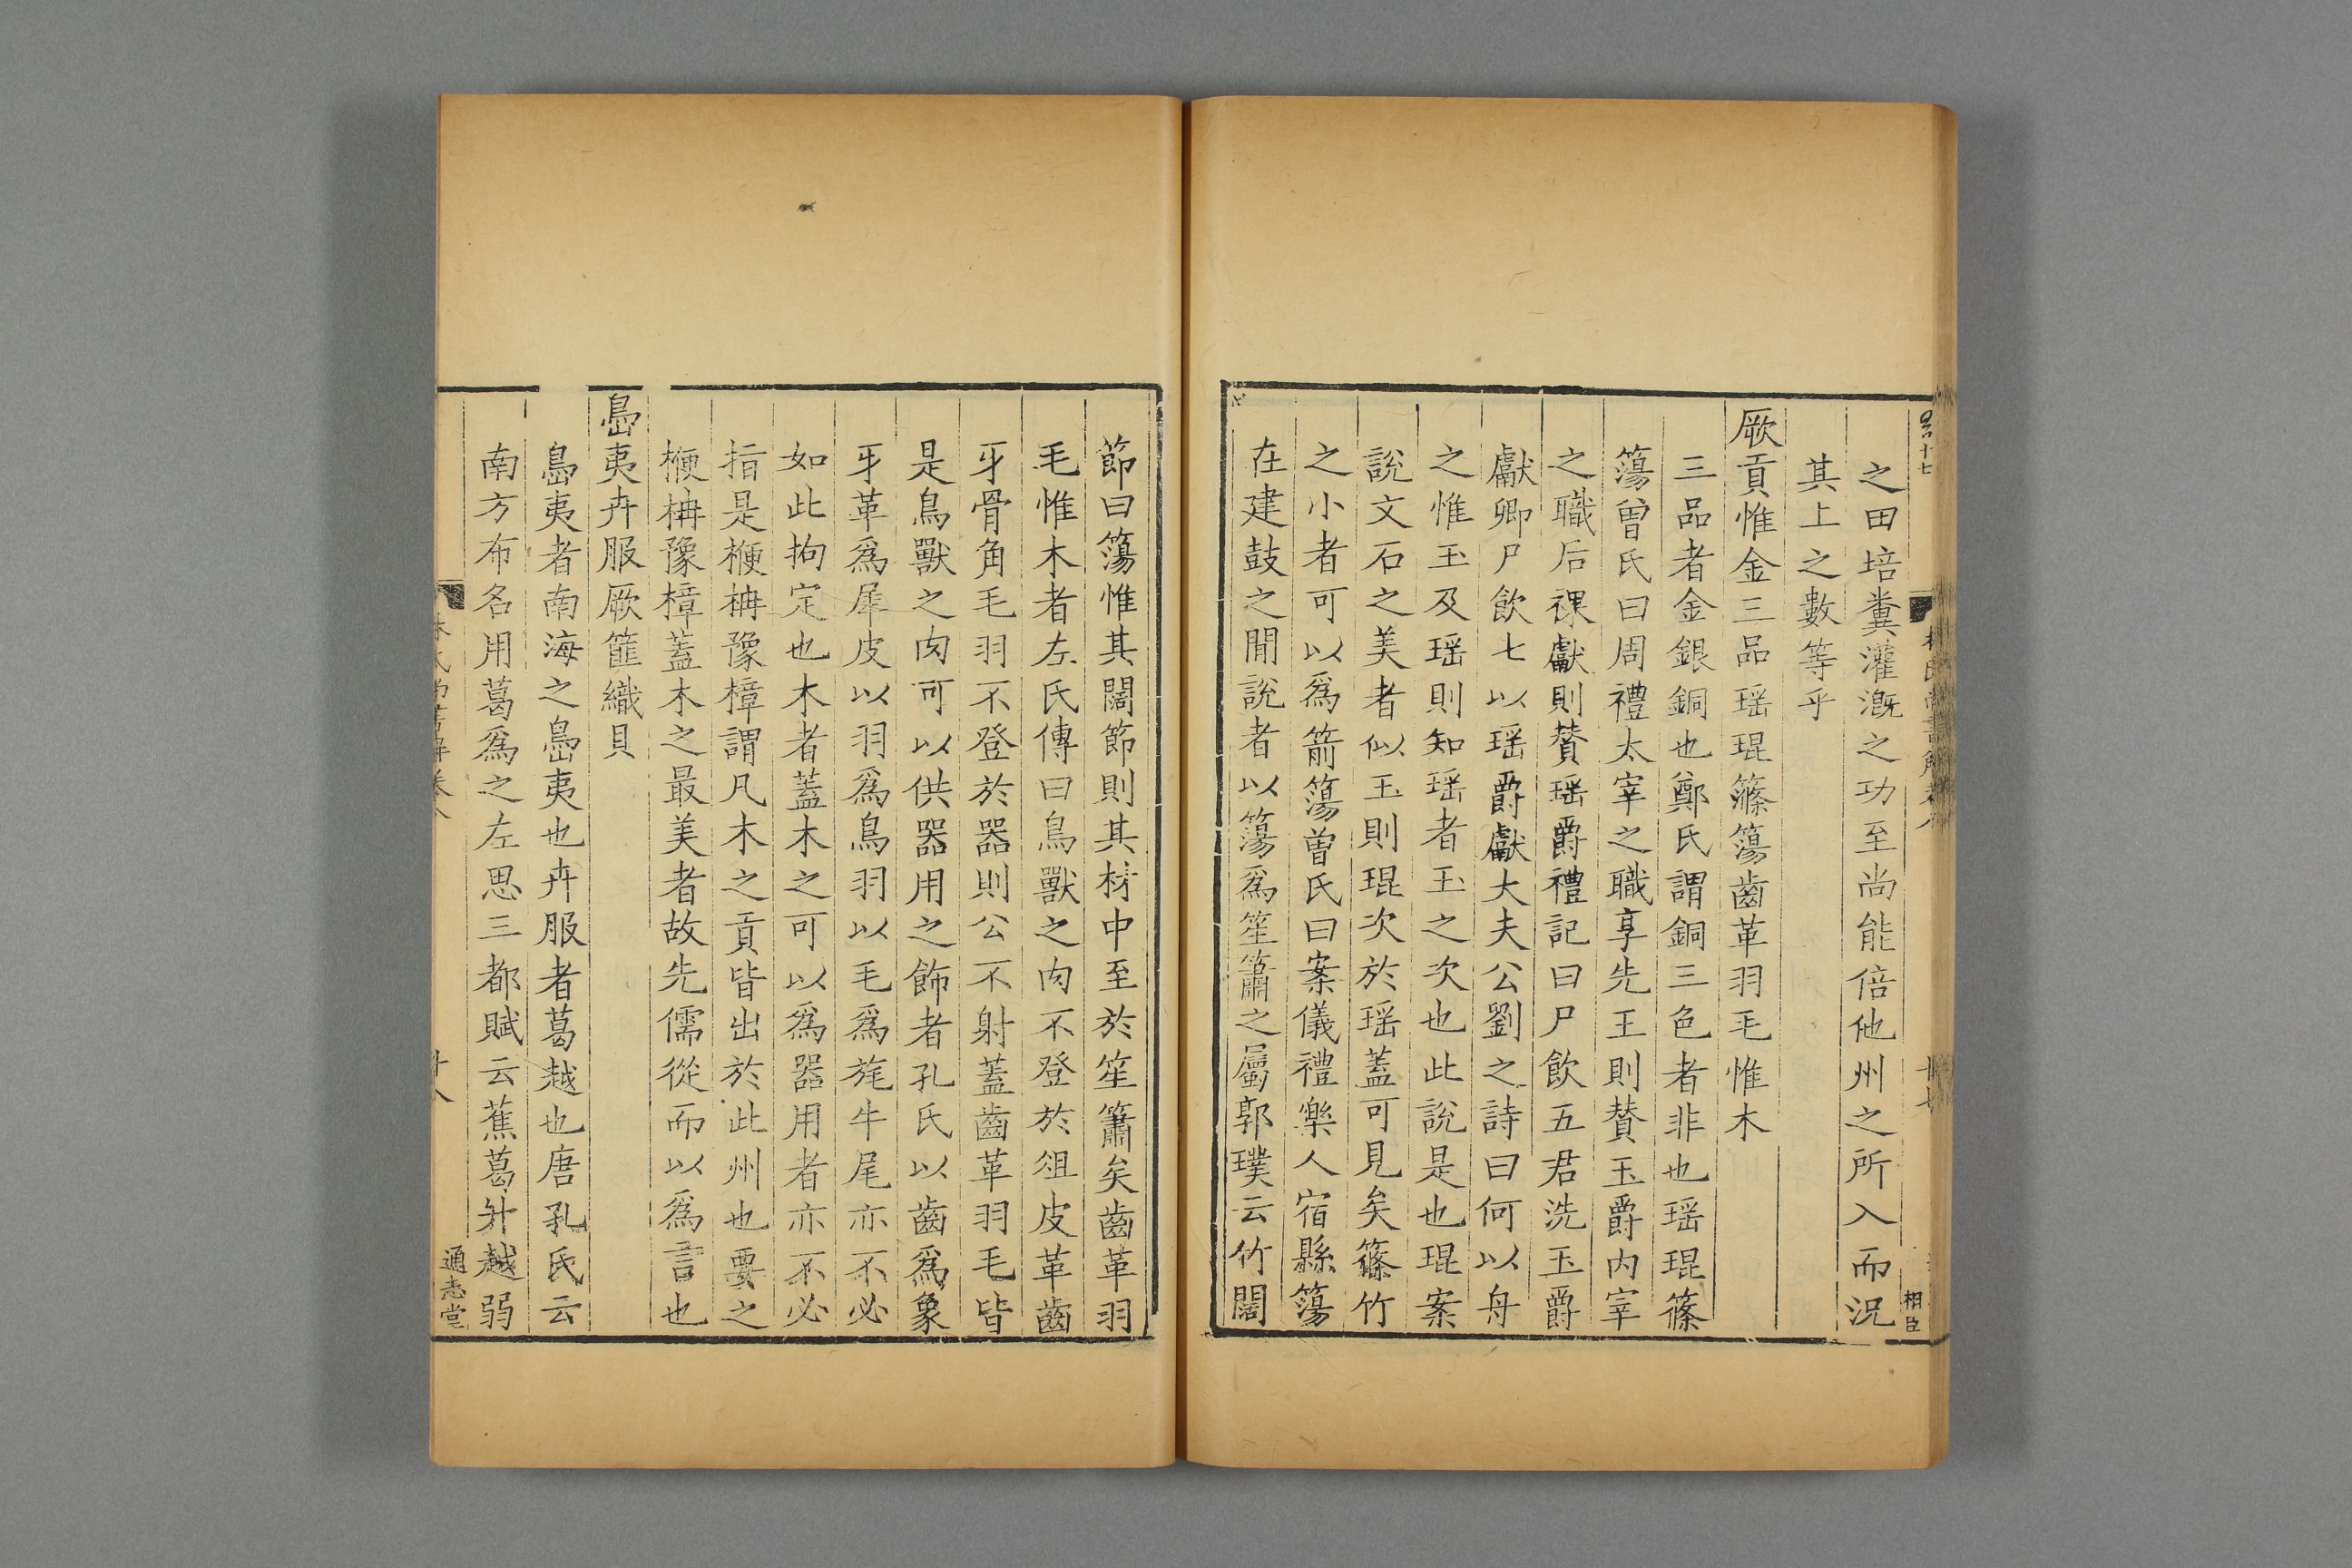 之田培糞灌漑之功至尚能倍他州之所入而況
其上之數等乎
厥貢惟金三品瑶琨篠簜齒革羽毛惟木
三品者金銀銅也鄭氏謂銅三色者非也瑶琨篠
簜曾氏曰周禮太宰之職享先王則賛玉爵内宰
之職后祼獻則賛瑶爵禮記曰尸飲五君洗玉爵
獻卿尸飲七以瑶爵獻大夫公劉之詩曰何以舟
之惟玉及瑶則知瑶者玉之次也此說是也琨案
說文石之美者似玉則琨次於瑶蓋可見矣篠竹
之小者可以爲箭簜曾氏曰案儀禮樂人宿縣簜
在建鼓之間說者以簜爲笙簫之屬郭璞云竹闊
節曰簜惟其闊節則其材中至於笙簫矣齒革羽
毛惟木者左氏傳曰鳥獸之肉不登於俎皮革齒
牙骨角毛羽不登於器則公不射蓋齒革羽毛皆
是鳥獸之肉可以供器用之飾者孔氏以齒爲象
牙革爲犀皮以羽爲鳥羽以毛爲旄牛尾亦不必
如此拘定也木者蓋木之可以爲器用者亦不必
指是楩枏豫樟謂凡木之貢皆出於此州也要之
楩枏豫樟蓋木之最美者故先儒從而以爲言也
島夷卉服厥篚織貝
島夷者南海之島夷也卉服者葛越也唐孔氏云
南方布名用葛爲之左思三都賦云蕉葛升越弱
通志堂